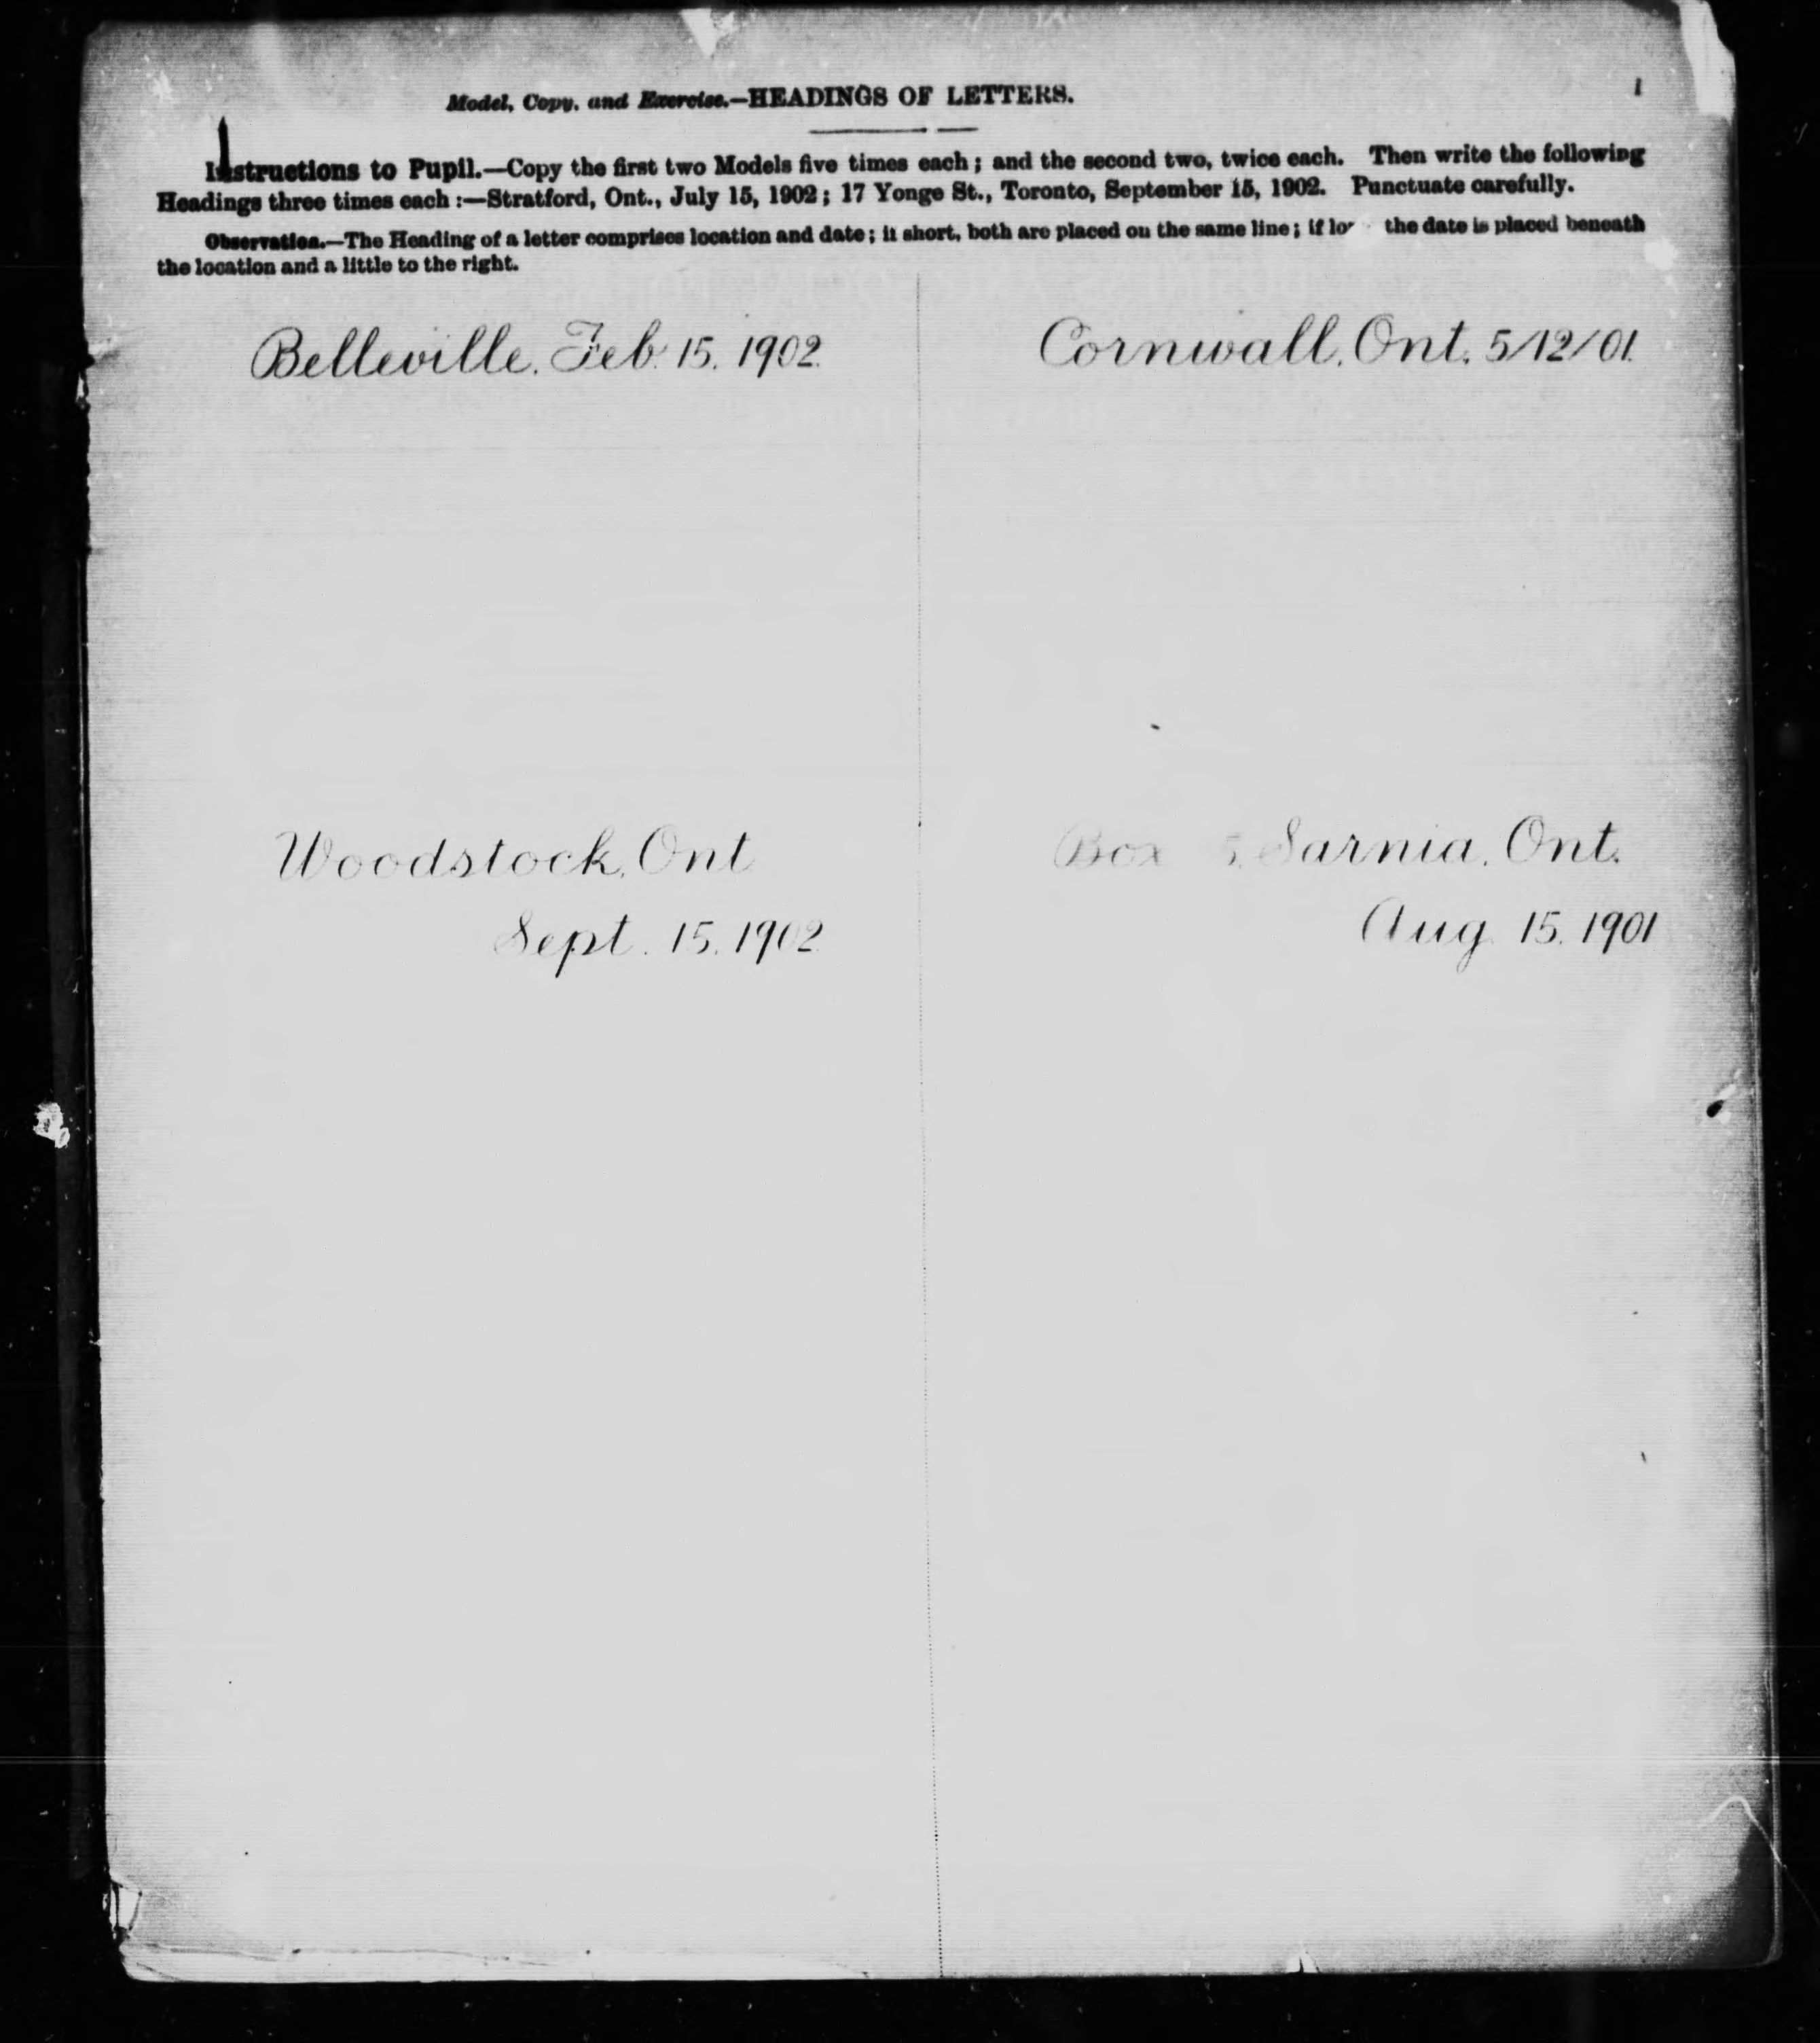 Model, Copy, and Exercise.—HEADINGS OF LETTERS.
1
Instructions to Pupil.—Copy the first two Models five times each; and the second two, twice each. Then write the following
Headings three times each:—Stratford, Ont., July 15, 1902; 17 Yonge St., Toronto, September 15, 1902. Punctuate carefully.
Observation.—The Heading of a letter comprises location and date; if short, both are placed on the same line; if the date is placed beneath
the location and a little to the right.
Belleville, Feb. 15, 1902.
Cornwall, Ont., 5/12/01.
Woodstock, Ont
Sept. 15, 1902.
Box Sarnia, Ont.
Aug. 15, 1901